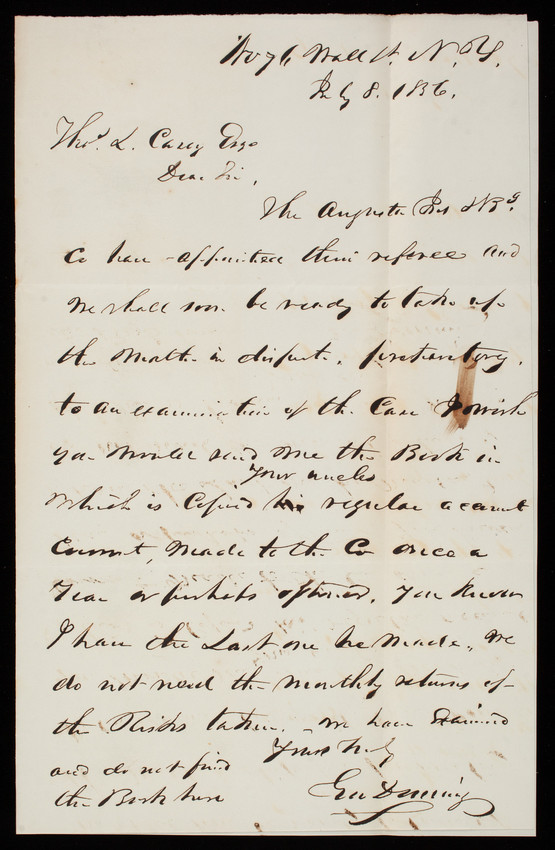 No 76 Wall St. N. Y.
July 8. 1856.
Thos. L. Casey Esqr
Dear Sir,
The Augusta Ins & Bg.
Co have appointed their referee and
we shall soon be ready to take up
the Matter in dispute. preparatory.
to an examination of the Case I wish
you would send me the Book in
your uncles
which is Copied his regular account
Current, Made to the Co once a
Year or perhaps oftener. You know
I have the Last one he Made. We
do not need the monthly returns of
the Risks taken. - we have Examined
and do not find
the Book here
Yours truly
Geo Deming